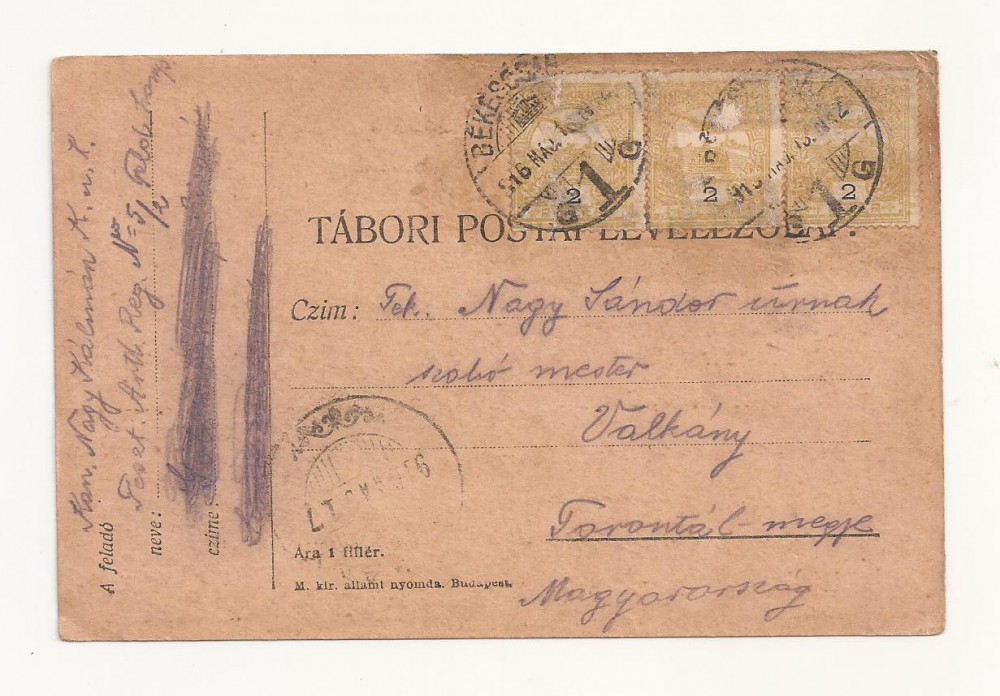 BÉKÉSCSAB
916 MÁJ.
1 G
2
2
2
916 MÁJ. 13.
1 G
TÁBORI POSTAI LEVELEZŐLAP.
Czim: Tek. Nagy Sándor úrnak
szabó mester
Valkány
Torontál-megye
Magyarország
Ára 1 fillér.
M. kir. állami nyomda. Budapest.
A feladó
neve:
czime:
Kan. Nagy Kálmán K. u. K.
Feszt. Artb. Reg. No 5 Feldkomp.
5/2